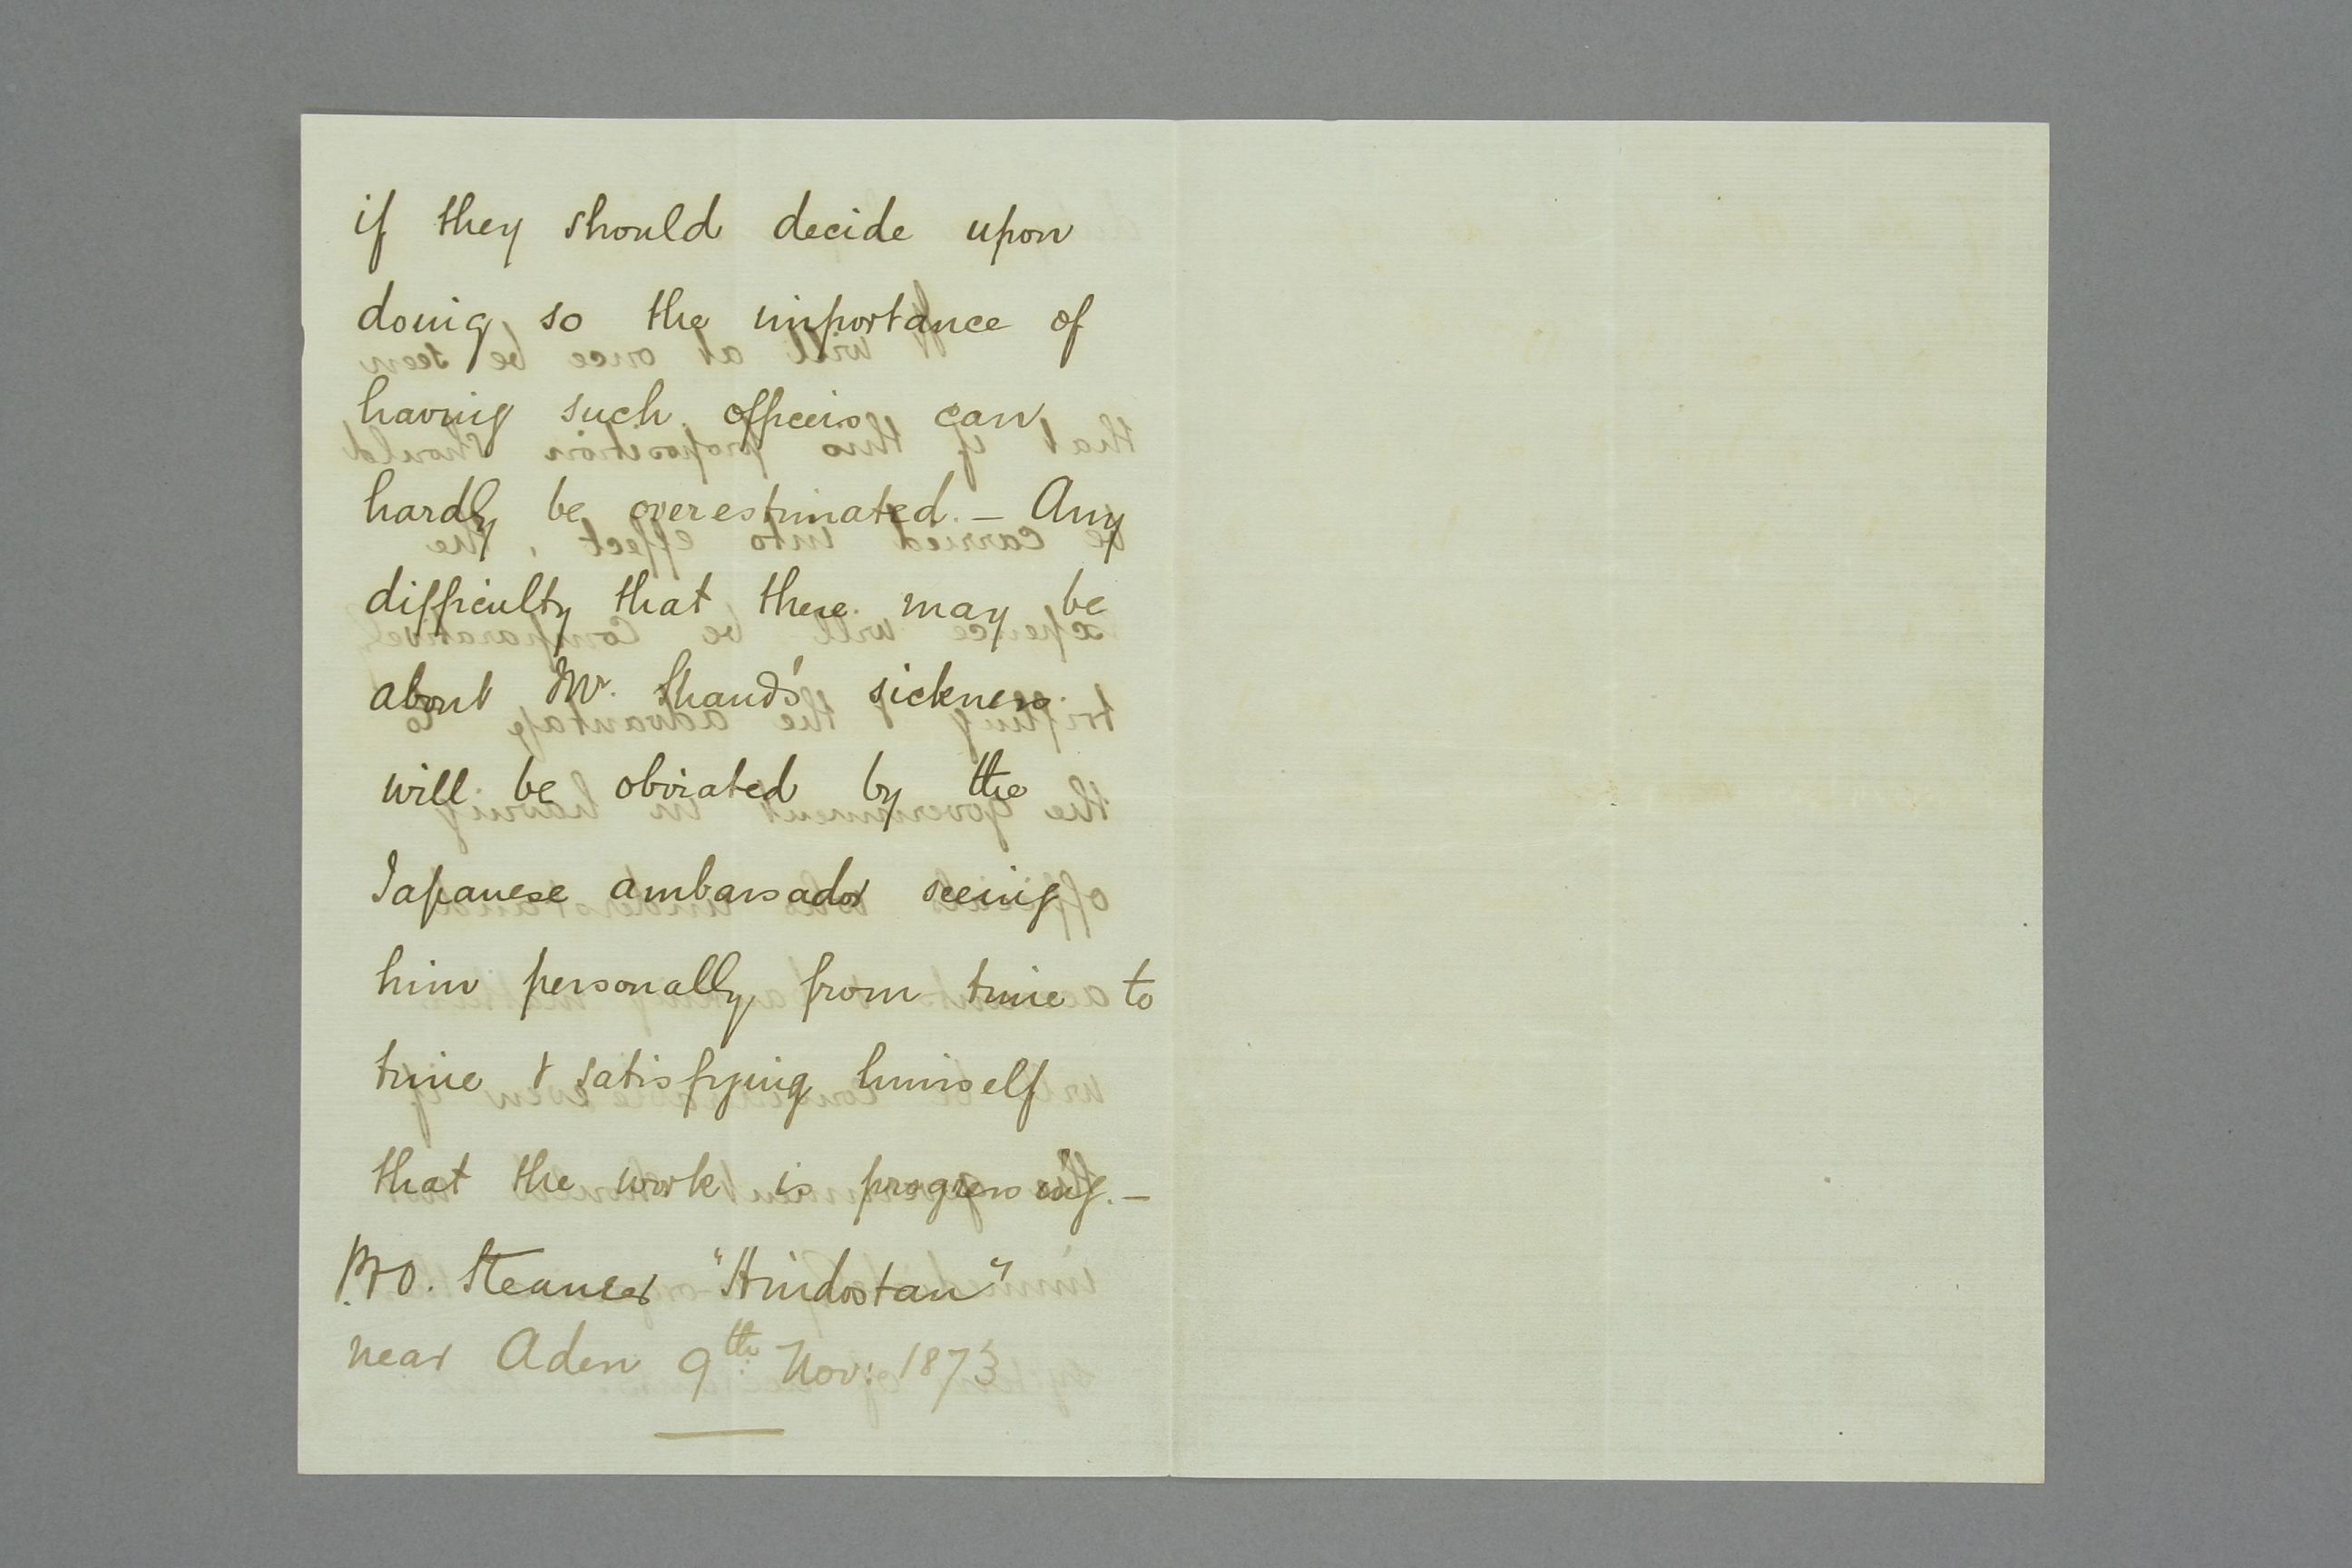 if they should decide upon
doing so the importance of
having such officers can
hardly be overestimated. — Any
difficulty that there may be
about Mr. Shand's sickness
will be obviated by the
Japanese ambassador seeing
him personally from time to
time & satisfying himself
that the work is progressing. —
P&O. Steamer "Hindostan"
near Aden 9th Nov: 1873